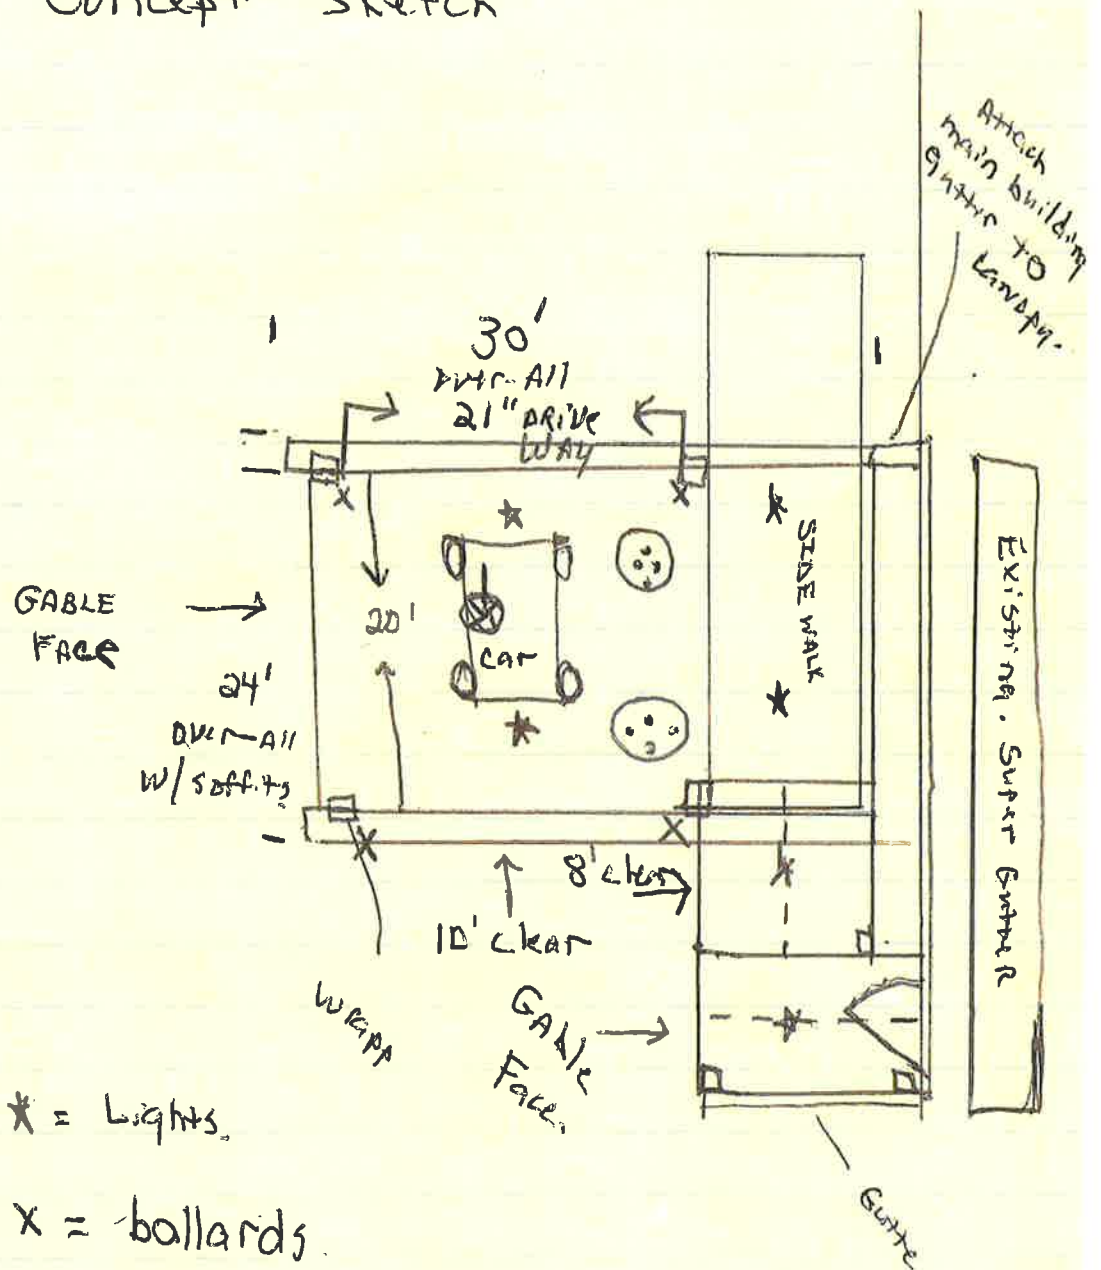 Concept Sketch
Attach
main building
gutter to
canopy.
30'
over-All
21" DRIVE
WAY
GABLE
FACE
20'
car
SIDE WALK
24'
over-All
w/ soffits
Existing. Super Gutter
8' clear
10' clear
WRAPP
GAble
Face.
* = Lights.
X = ballards.
Gutte